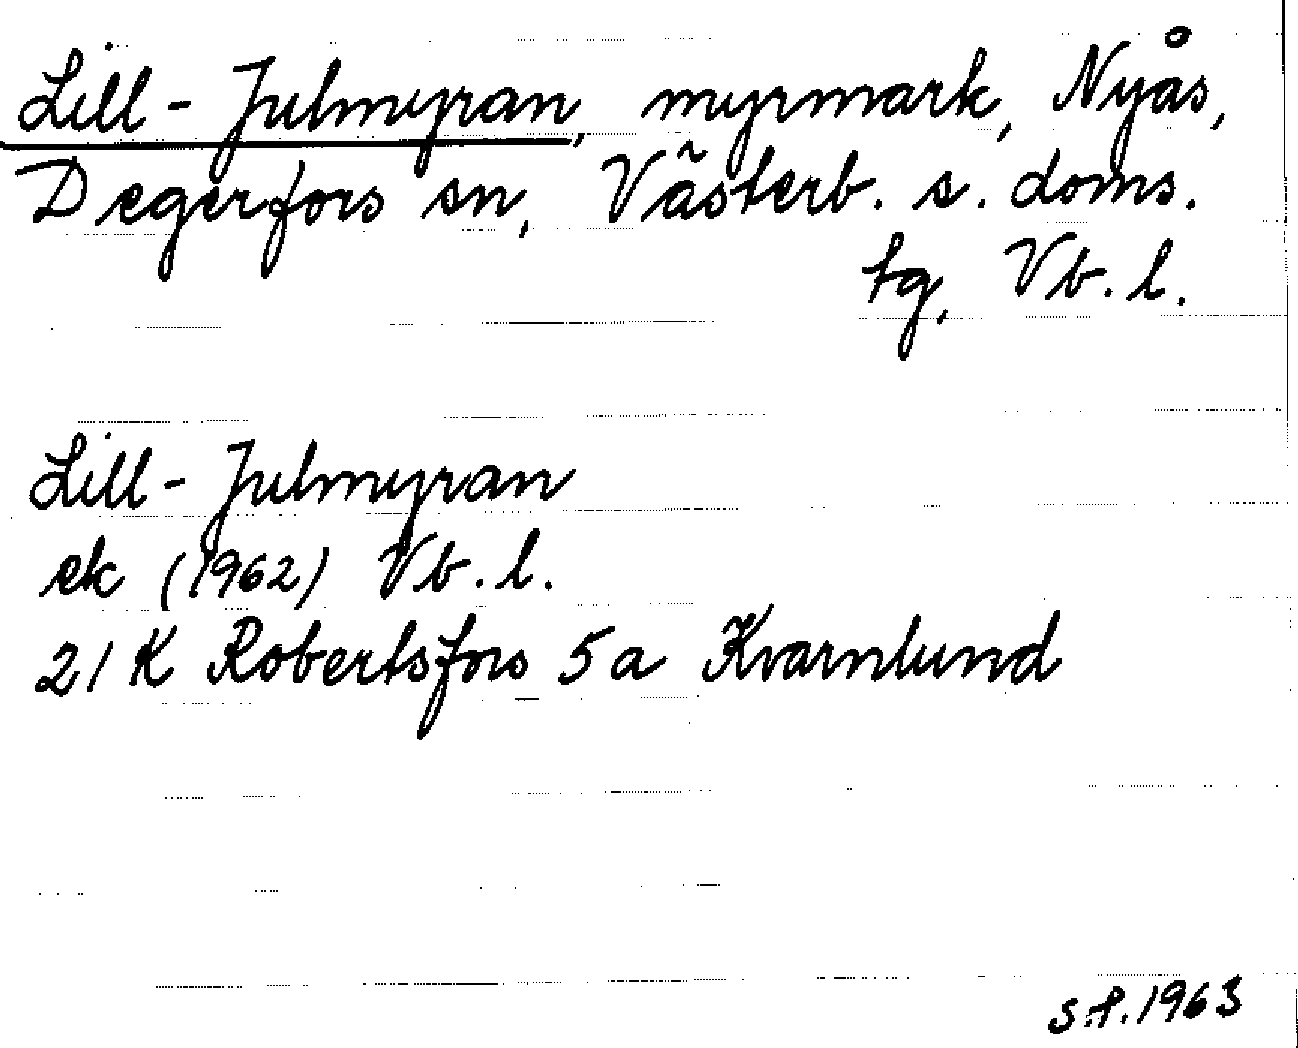 Lill-Julmyran, myrmark, Nyås,
Degerfors sn, Västerb. s. doms.
tg, Vb. l.
Lill-Julmyran
ek (1962) Vb. l.
21 K Robertsfors 5 a Kvarnlund
s.f. 1963